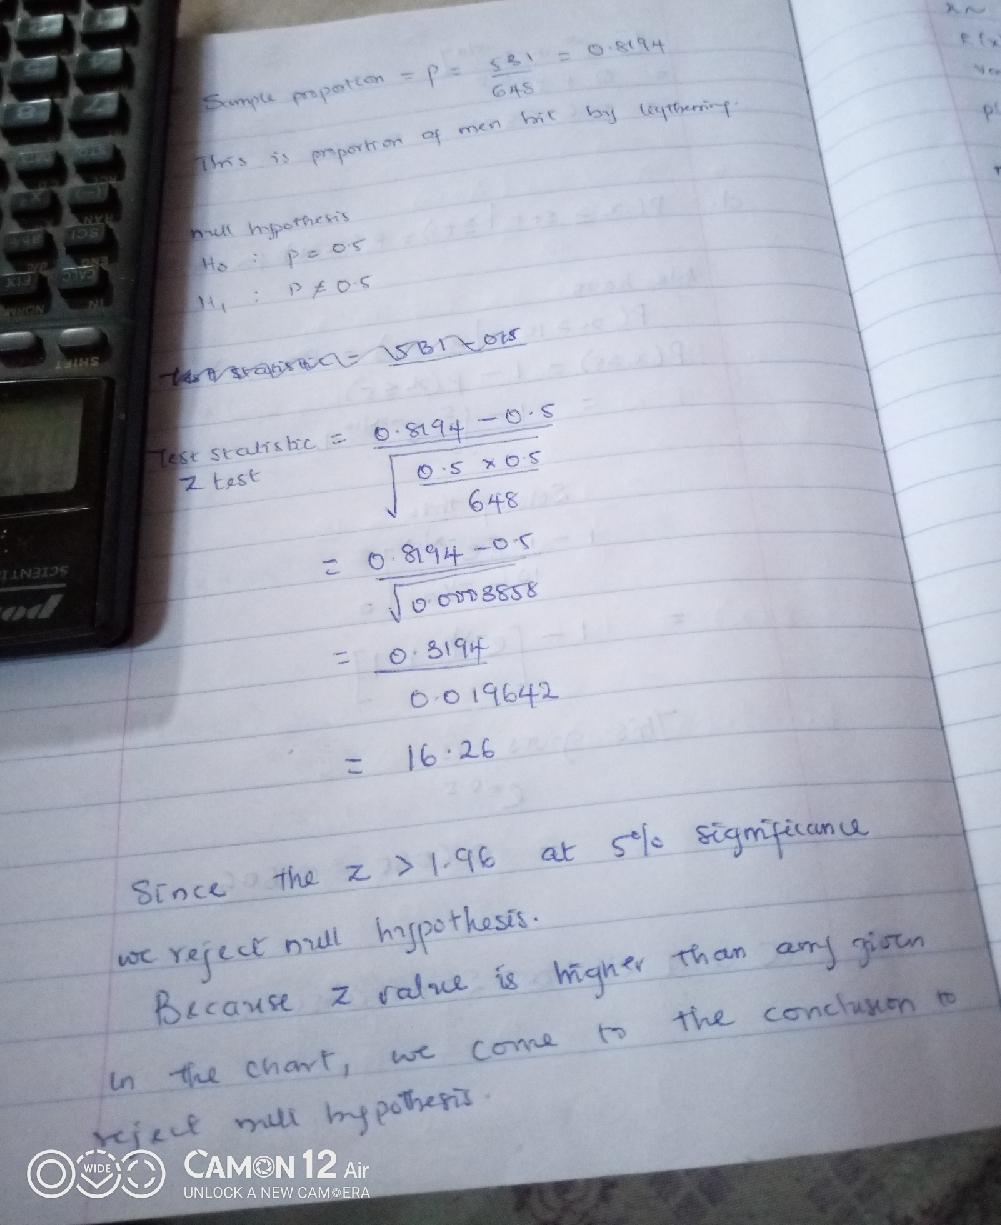 Sample proportion = P = 531 = 0.8194
648
This is proportion of men hit by lightning.
null hypothesis
H0 : P = 0.5
H1 : P ≠ 0.5
Test statistic = 0.8194 - 0.5
Z test √ 0.5 x 0.5
648
= 0.8194 - 0.5
√0.0003858
= 0.3194
0.019642
= 16.26
Since the z > 1.96 at 5% significance
we reject null hypothesis.
Because z value is higher than any given
in the chart, we come to the conclusion to
reject null hypothesis.
SHIFT
SCIENTI
CAMON 12 Air
WIDE
UNLOCK A NEW CAMERA